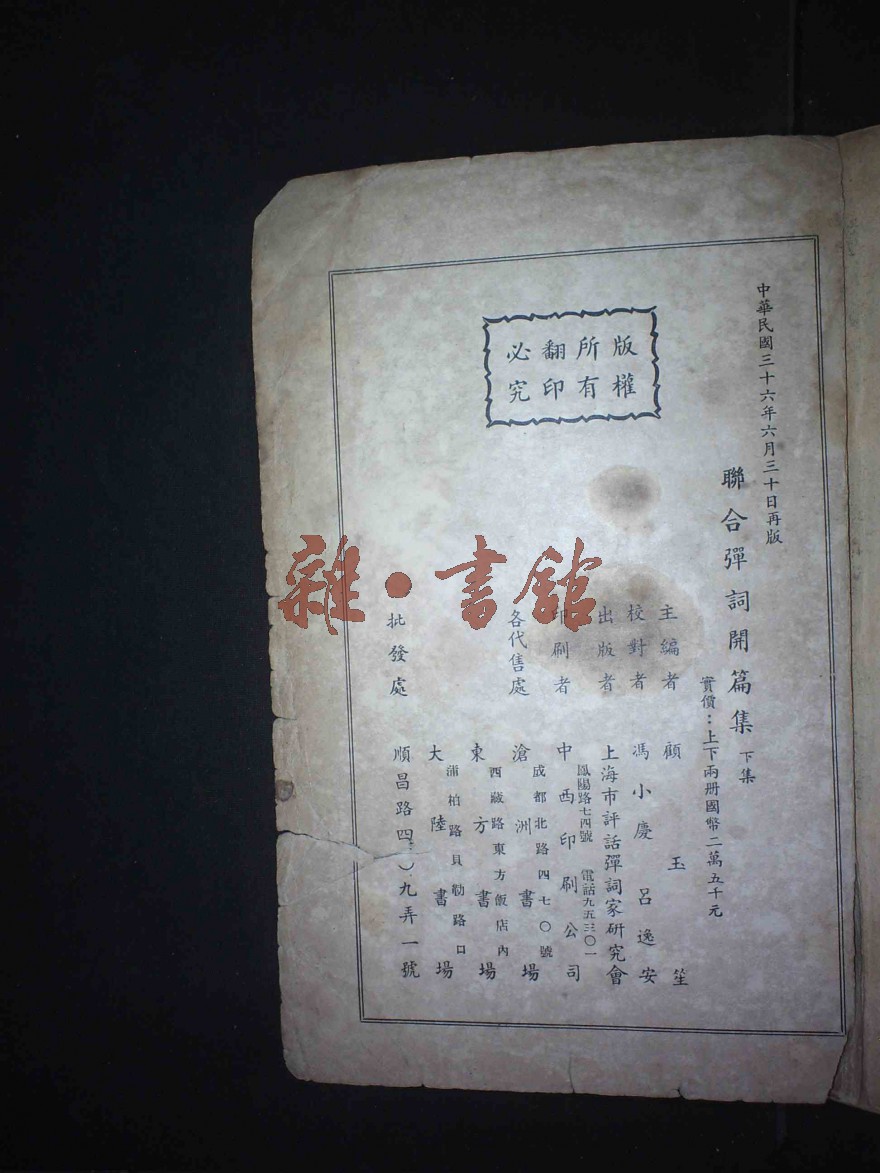 中華民國三十六年六月三十日再版
聯合彈詞開篇集 下集
實價：上下兩册國幣二萬五千元
主編者 顧玉笙
校對者 馮小慶 呂逸安
出版者 上海市評話彈詞家研究會
鳳陽路七四號 電話九五三〇一
印刷者 中西印刷公司
成都北路四七〇號
各代售處 滄洲書場
西藏路東方飯店內
東方書場
蒲柏路貝勒路口
大陸書場
批發處 順昌路四〇九弄一號
版權
所有
翻印
必究
雜·書館